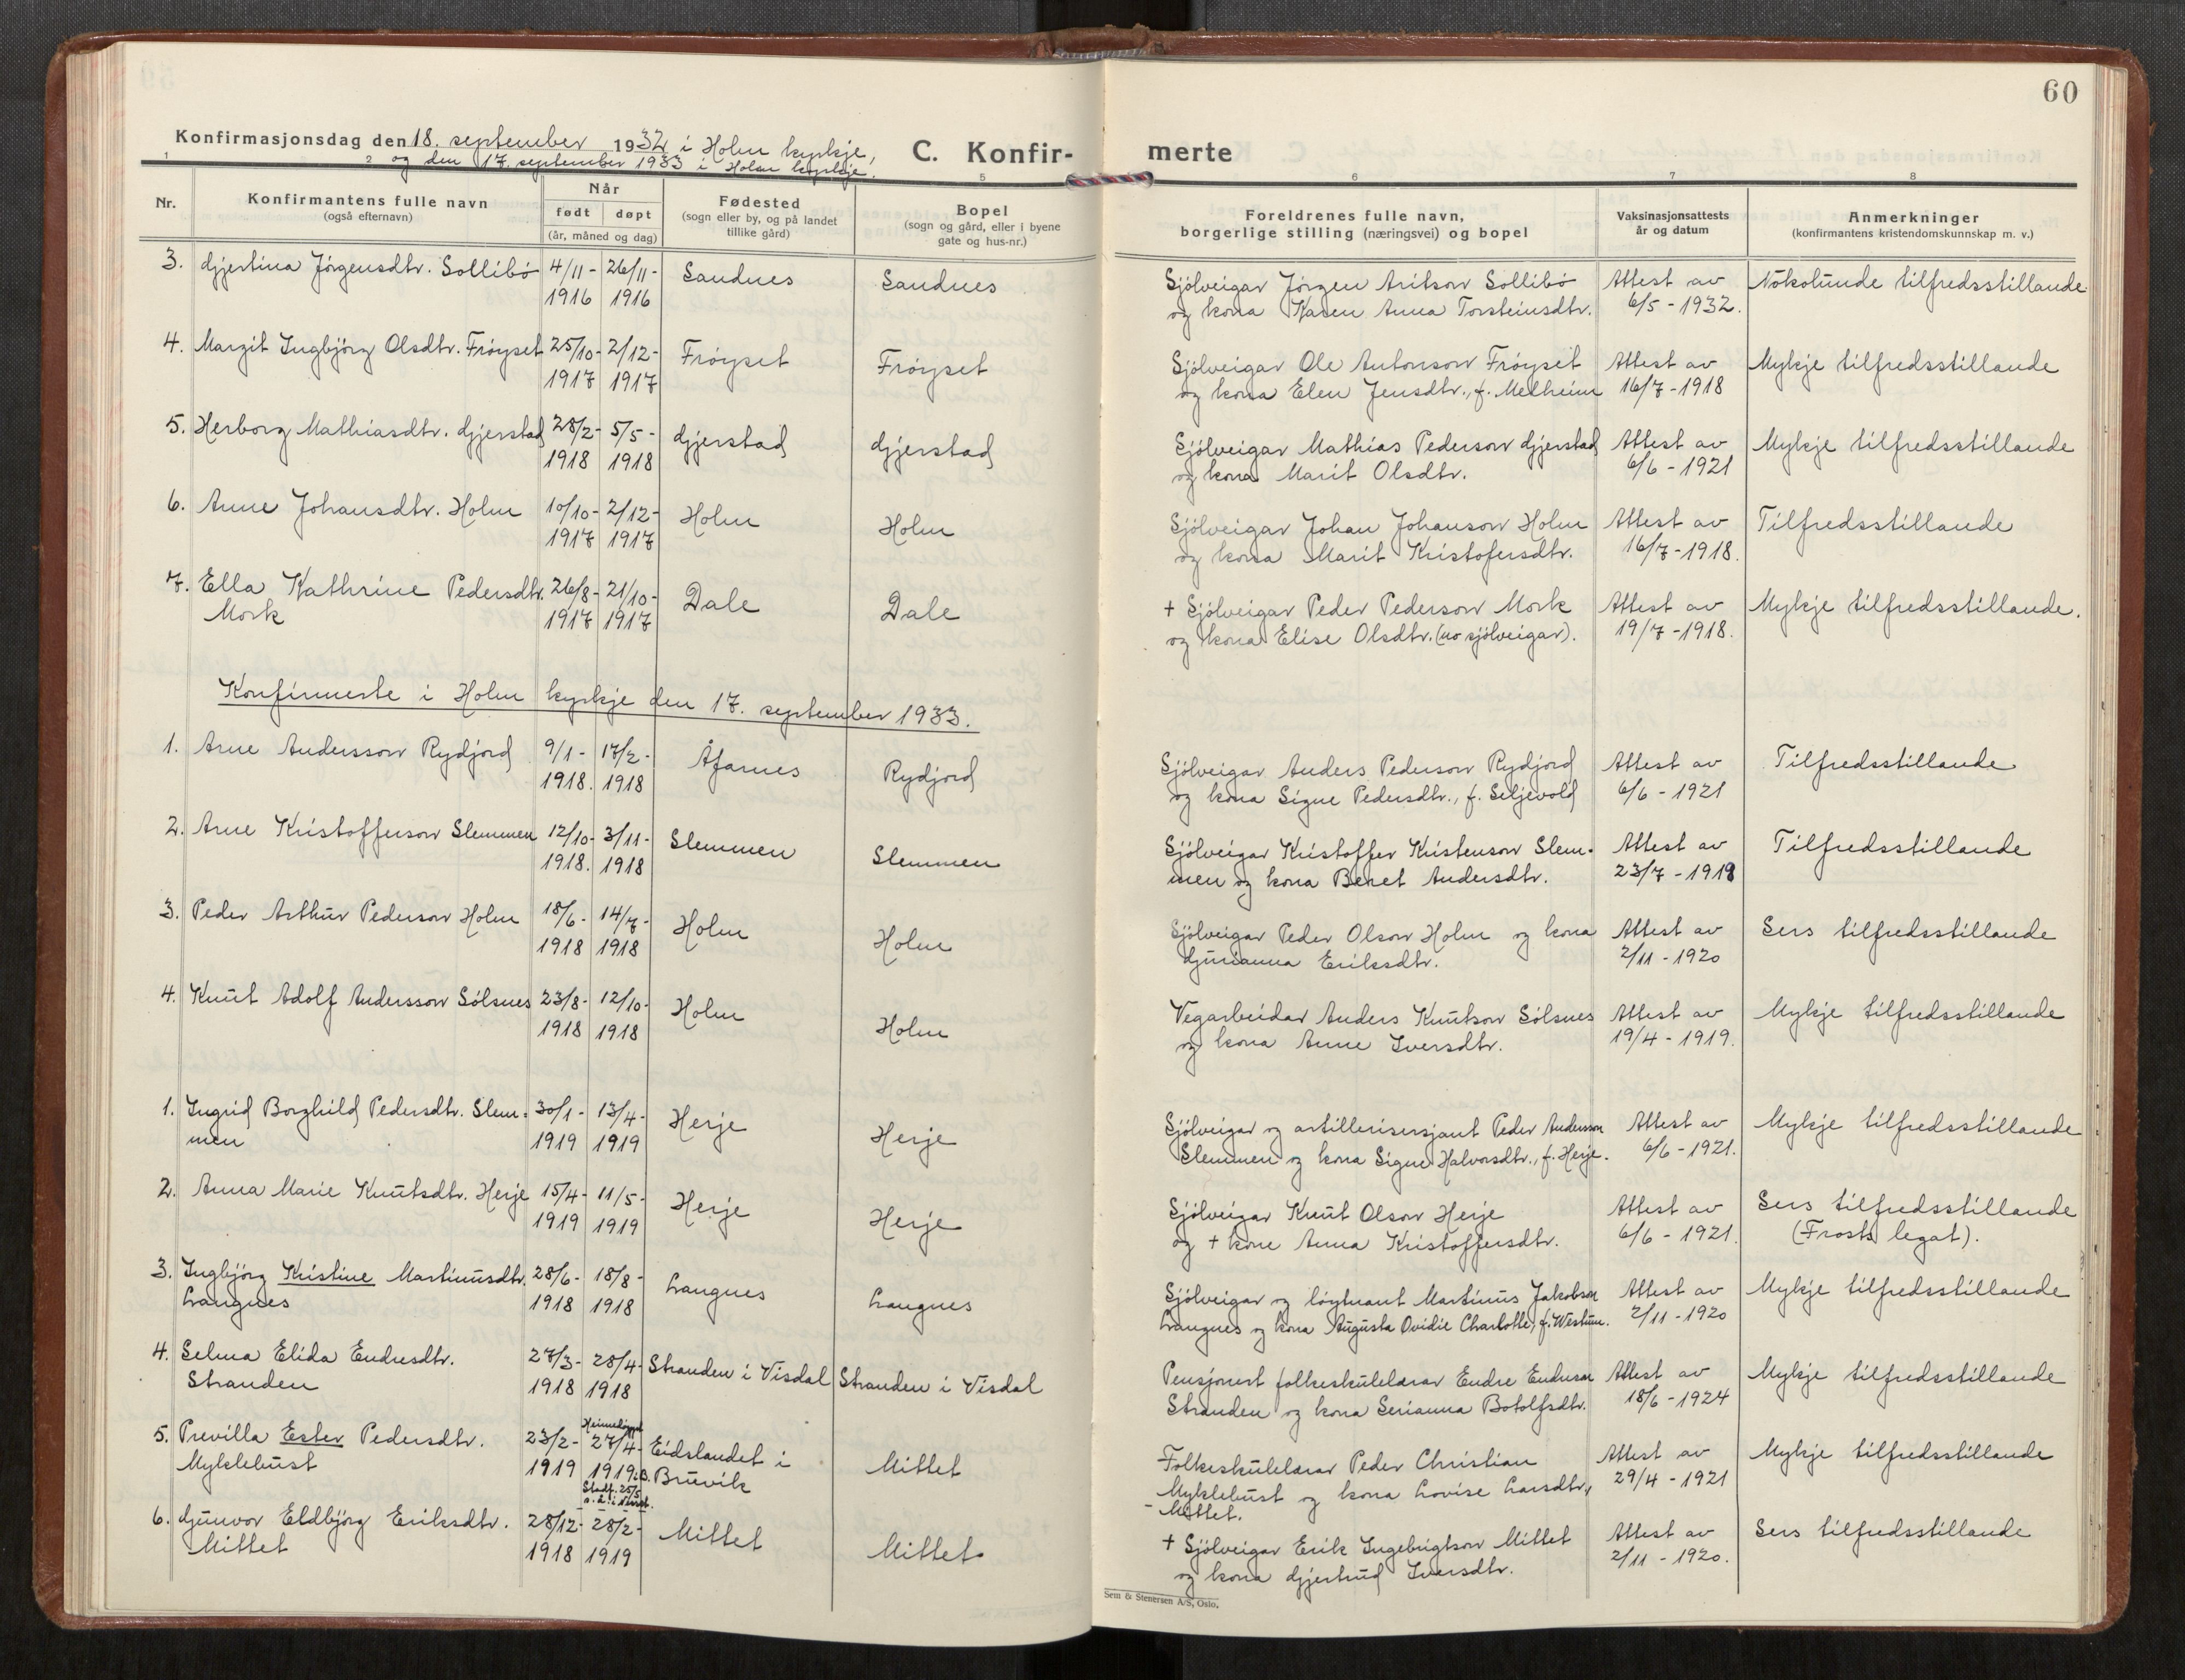 60
Konfirmasjonsdag den 18. september 1932 i Holm kyrkje,
og den 17. september 1933 i Holm kyrkje.
C. Konfir-
merte
1 2 5 6 7 8
Nr.
Konfirmantens fulle navn
(også efternavn)
Når
født døpt
(år, måned og dag)
Fødested
(sogn eller by, og på landet
tillike gård)
Bopel
(sogn og gård, eller i byene
gate og hus-nr.)
Foreldrenes fulle navn,
borgerlige stilling (næringsvei) og bopel
Vaksinasjonsattests
år og datum
Anmerkninger
(konfirmantens kristendomskunnskap m. v.)
3. Gjertina Jörgensdtr. Sollibö 4/11- 26/11- Sandnes Sandnes Sjölveigar Jörgen Aritson Sollibö Attest av Nokolunde tilfredsstillande
1916 1916 og kona Karen Anna Torsteinsdtr. 6/5 - 1932.
4. Margit Ingbjörg Olsdtr. Fröyset 25/10- 2/12- Fröyset Fröyset Sjölveigar Ole Antonson Fröyset Attest av Mykje tilfredsstillande
1917 1917 og kona Elen Jensdtr., f. Melheim 16/7 - 1918
5. Herborg Mathiasdtr. Gjerstad 28/2- 5/5- Gjerstad Gjerstad Sjölveigar Mathias Pederson Gjerstad Attest av Mykje tilfredsstillande
1918 1918 og kona Marit Olsdtr. 6/6 - 1921
6. Anne Johansdtr. Holm 10/10- 2/12- Holm Holm Sjölveigar Johan Johanson Holm Attest av Tilfredsstillande
1917 1917 og kona Marit Kristofersdtr. 16/7 - 1918.
7. Ella Kathrine Pedersdtr. 26/8- 21/10- Dale Dale + Sjölveigar Peder Pederson Mork Attest av Mykje tilfredsstillande.
Mork 1917 1917 og kona Elise Olsdtr. (no sjölveigar). 19/7 - 1918.
Konfirmerte i Holm kyrkje den 17. september 1933.
1. Arne Andersson Rydjord 9/1- 17/2- Åfarnes Rydjord Sjölveigar Anders Pederson Rydjord Attest av Tilfredsstillande
1918. 1918 og kona Signe Pedersdtr., f. Seljevold 6/6 - 1921
2. Arne Kristofferson Slemmen 12/10- 3/11- Slemmen Slemmen Sjölveigar Kristoffer Kristenson Slem- Attest av Tilfredsstillande
1918. 1918 men og kona Beret Andersdtr. 23/7 - 1919
3. Peder Arthur Pederson Holm 18/6- 14/7- Holm Holm Sjölveigar Peder Olson Holm og kona Attest av Sers tilfredsstillande
1918 1918 Gurianna Eriksdtr. 2/11 - 1920
4. Knut Adolf Andersson Sölsnes 23/8- 12/10- Holm Holm Vegarbeidar Anders Knutson Sölsnes Attest av Mykje tilfredsstillande
1918 1918 og kona Anne Iversdtr. 19/4 - 1919.
1. Ingrid Borghild Pedersdtr. Slem- 30/1- 13/4- Herje Herje Sjölveigar og artillerisersjant Peder Andersson Attest av Mykje tilfredsstillande
men 1919 1919 Slemmen og kona Signe Halvorsdtr., f. Herje. 6/6 - 1921.
2. Anna Marie Knutsdtr. Herje 15/4- 11/5- Herje Herje Sjölveigar Knut Olson Herje Attest av Sers tilfredsstillande
1919 1919 og + kone Anna Kristoffersdtr. 6/6 - 1921. (Frosts legat).
3. Ingbjörg Kristine Martinusdtr. 28/6- 18/8- Langnes Langnes Sjölveigar og löytnant Martinus Jakobson Attest av Mykje tilfredsstillande
Langnes 1918 1918 Langnes og kona Augusta Ovidie Charlotte, f. Westum. 2/11 - 1920
4. Selma Elida Endresdtr. 27/3- 28/4- Stranden i Visdal Stranden i Visdal Pensjonert folkeskulelærar Endre Endreson Attest av Mykje tilfredsstillande
Stranden 1918 1918 Stranden og kona Serianna Botolfsdtr. 18/6 - 1924
Heimedöypt
5. Previlla Ester Pedersdtr. 23/2- 27/4- Eidslandet i Mittet Folkeskulelærar Peder Christian Attest av Mykje tilfredsstillande
Myklebust 1919 1919. Bruvik Myklebust og kona Lovise Larsdtr, 29/4 - 1921
Stadf. 25/5
- Mittet.
6. Gunvor Eldbjörg Eriksdtr. 28/12- 28/2- Mittet Mittet + Sjölveigar Erik Ingebrigtson Mittet Attest av Sers tilfredsstillande
Mittet 1918 1919 og kona Gjertrud Iversdtr. 2/11 - 1920.
Sem & Stenersen A/S, Oslo.